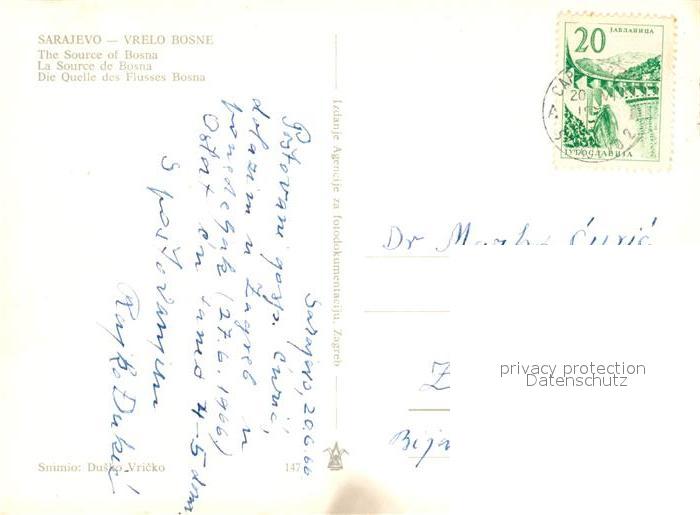 SARAJEVO — VRELO BOSNE
The Source of Bosna
La Source de Bosna
Die Quelle des Flusses Bosna
Sarajevo, 20.6.66
Poštovani gosp. Ćurić,
dolazim u Zagreb u
ponedeljak (27.6.1966)
Ostat ću samo 4-5 dana.
S poštovanjem
Rajko Đukić
Snimio: Duško Vričko
147
Izdanje Agencije za fotodokumentaciju, Zagreb
20
ЈАБЛАНИЦА
ЈУГОСЛАВИЈА
Dr Marko Ćurić
privacy protection
Datenschutz